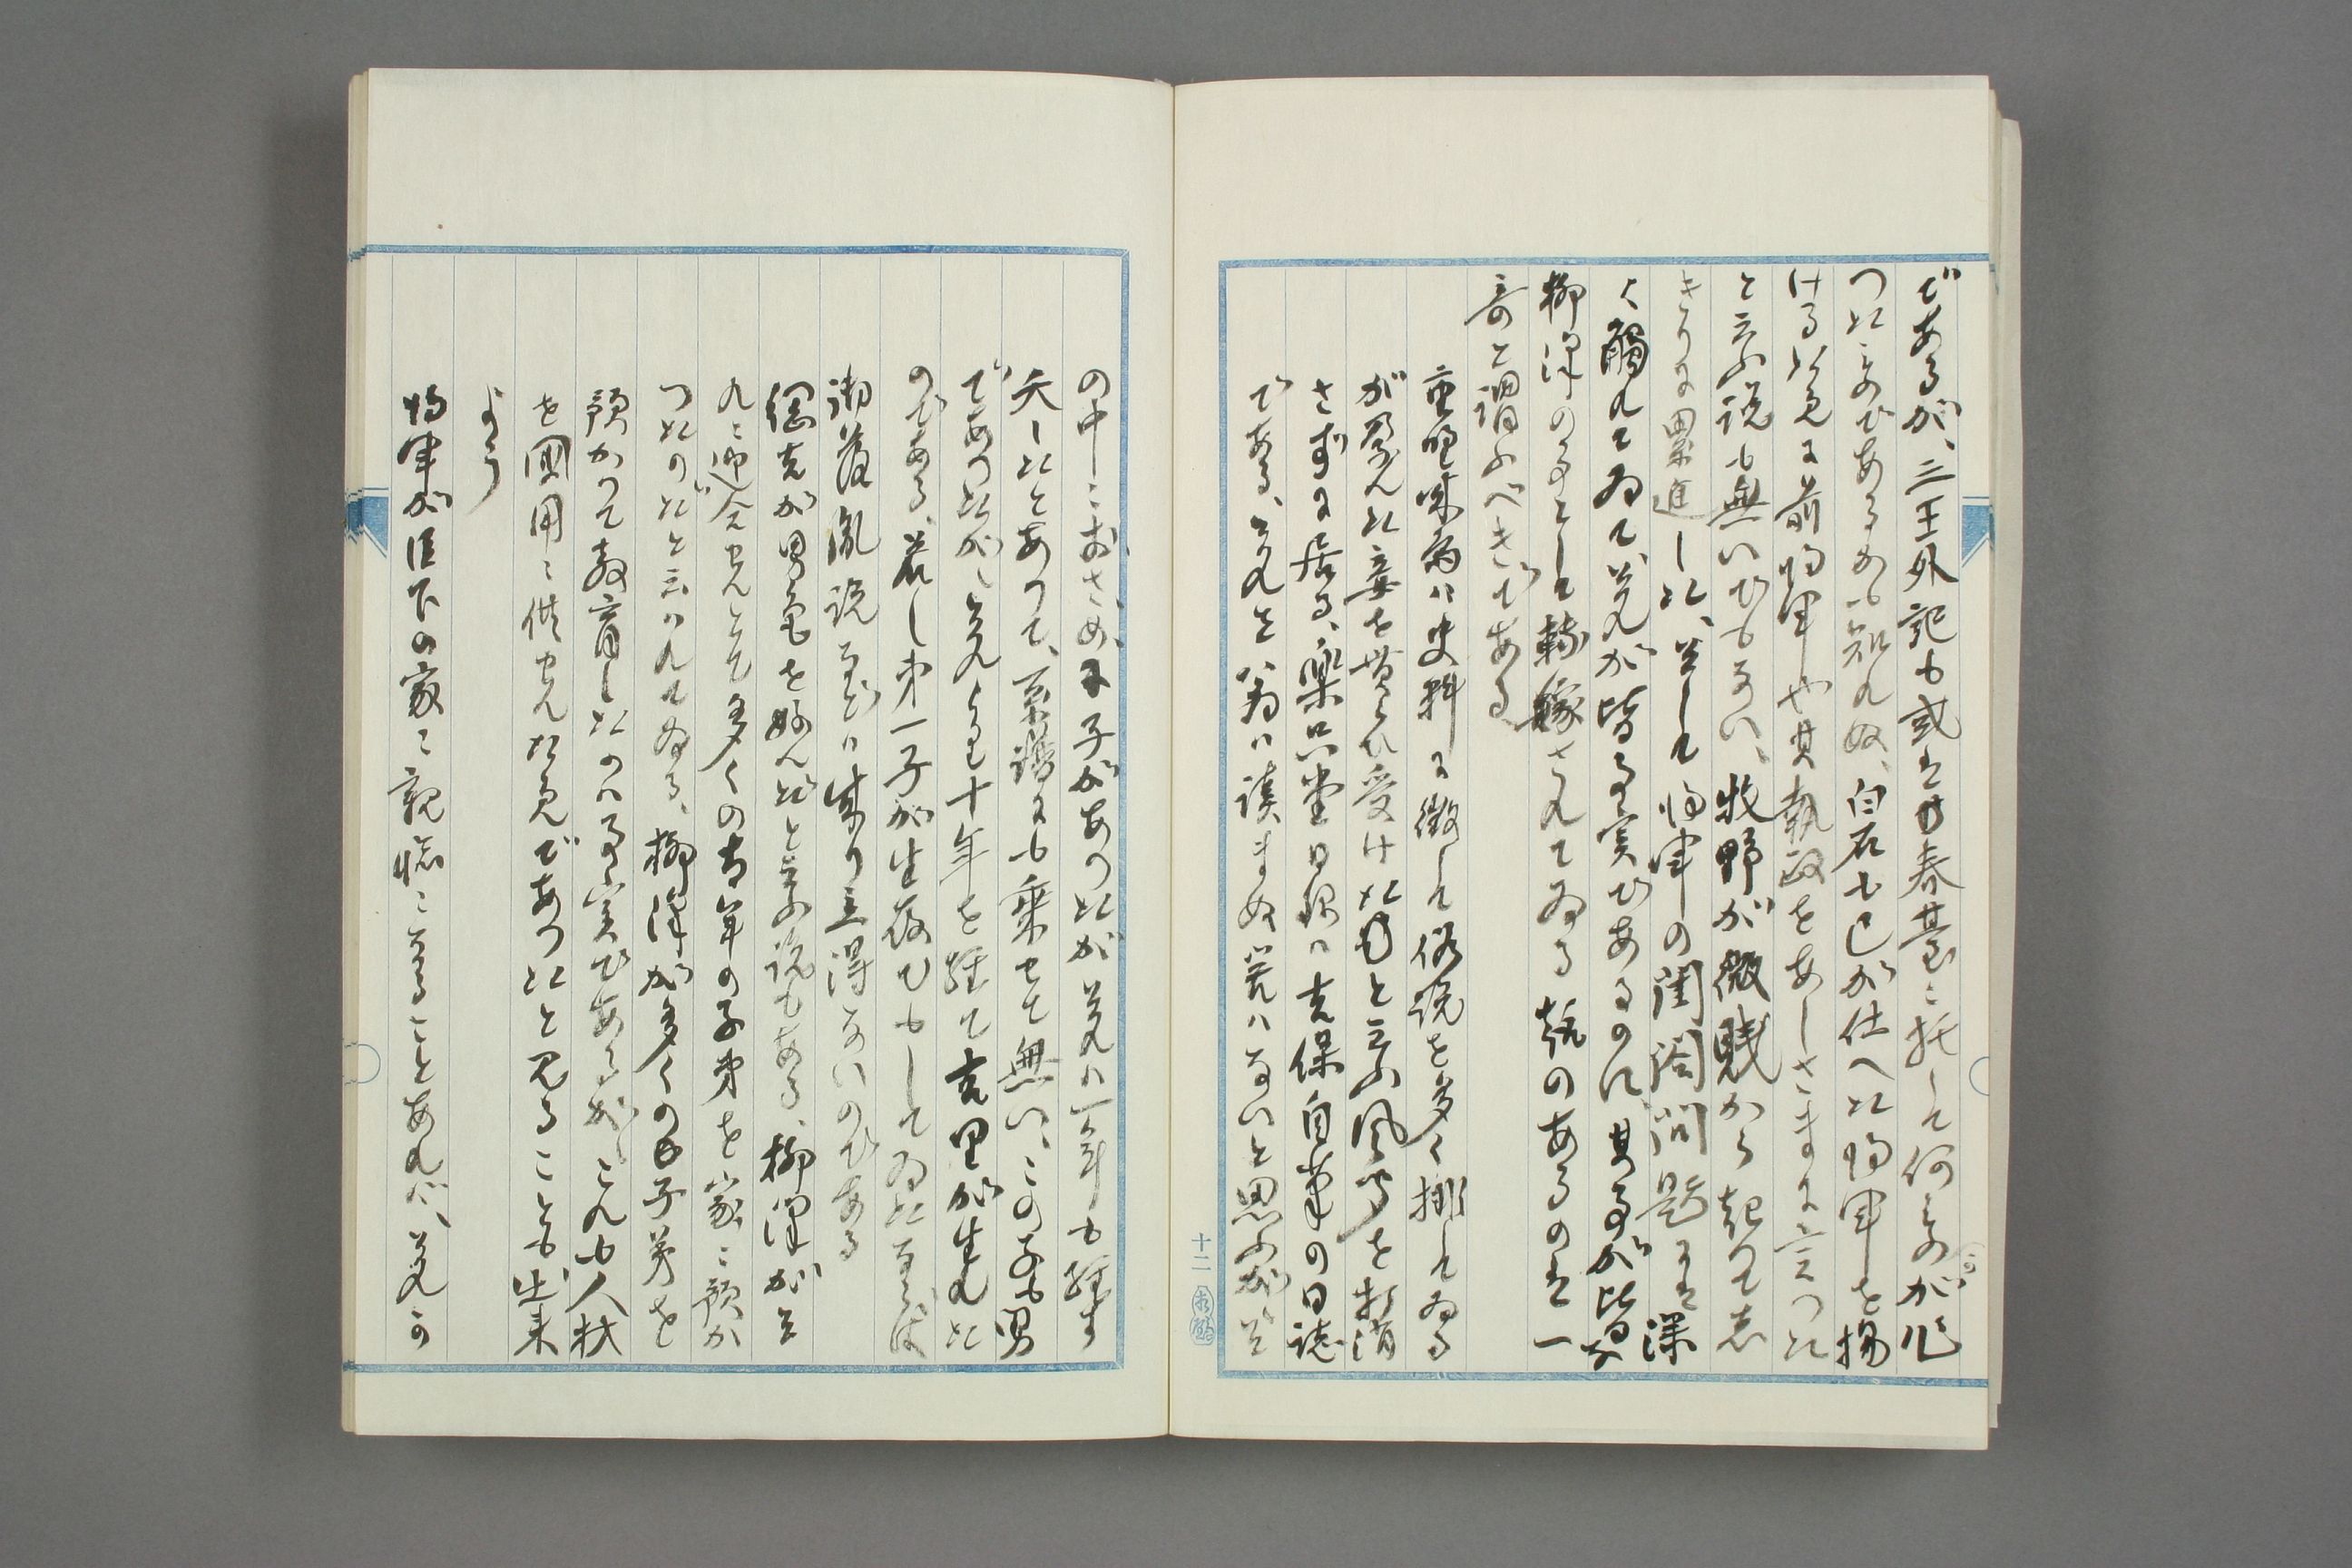 であるが、三王外記も或は春台に托して何者かが作
つたものであるかも知れぬ、白石も己が仕へた将軍を揚
ける為に前将軍や其執政をあしさまに言つた
と云ふ説も無いでもない、牧野が微賤から起つて志
きりに累進した、そして将軍の閨閤問題は深
く触れてゐて、それが皆事実であるのに、其事が皆な
柳沢の事として転嫁されてゐる 趣のあるのは一
奇と謂ふべきである
重野味斎は史料に徴して俗説を多く排してゐる
が孕んだ妾を貰ひ受けたと云ふ風聞を打消
さずに居る、楽只堂日録は吉保自筆の日誌
である、それを翁は読まぬ筈はないと思ふがそ
の中におさめ子があつたが それは一年も経ず
夭したとあつて、系譜にも乗せて無い、この子も男
であつたが、それより十年を経て吉里が生れた
のである、若し第一子が生存でもしてゐたならば
御落胤説などは成り立得ないのである
綱吉が男色を好んだと云ふ説もある、柳沢がそ
れに迎合せんとて多くの青年の子弟を家に預か
つたのだと云はれてゐる、柳沢が多くの子弟を
預かつて教育したのは事実であるが、これも人材
を国用に供せんが為であつたと見ることも出来
よう
将軍が臣下の家に親臨になることあれば、それこの
十二